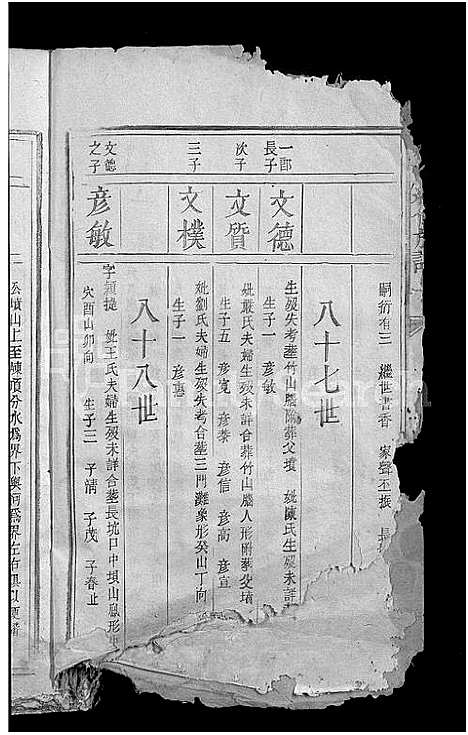 嗣衍有三 繼世書香 家聲丕振
八十七世
一郎長子
文德
生歿失考葬竹山
附葬父墳 妣陳氏生歿未詳
生子一 彥敏
次子
文質
妣嚴氏夫婦生歿未詳合葬竹山人形附葬父墳
生子五 彥寬 彥泰 彥信 彥高 彥宣
三子
文樸
妣劉氏夫婦生歿失考合葬三門灘象形癸山丁向
生子一 彥惠
八十八世
文德之子
彥敏
字 妣王氏夫婦生歿未詳合葬長坑口中墳山形
穴酉山卯向 生子三 子清 子茂 子春止
墳山上至陳頂分水為界下與河為界左右俱以